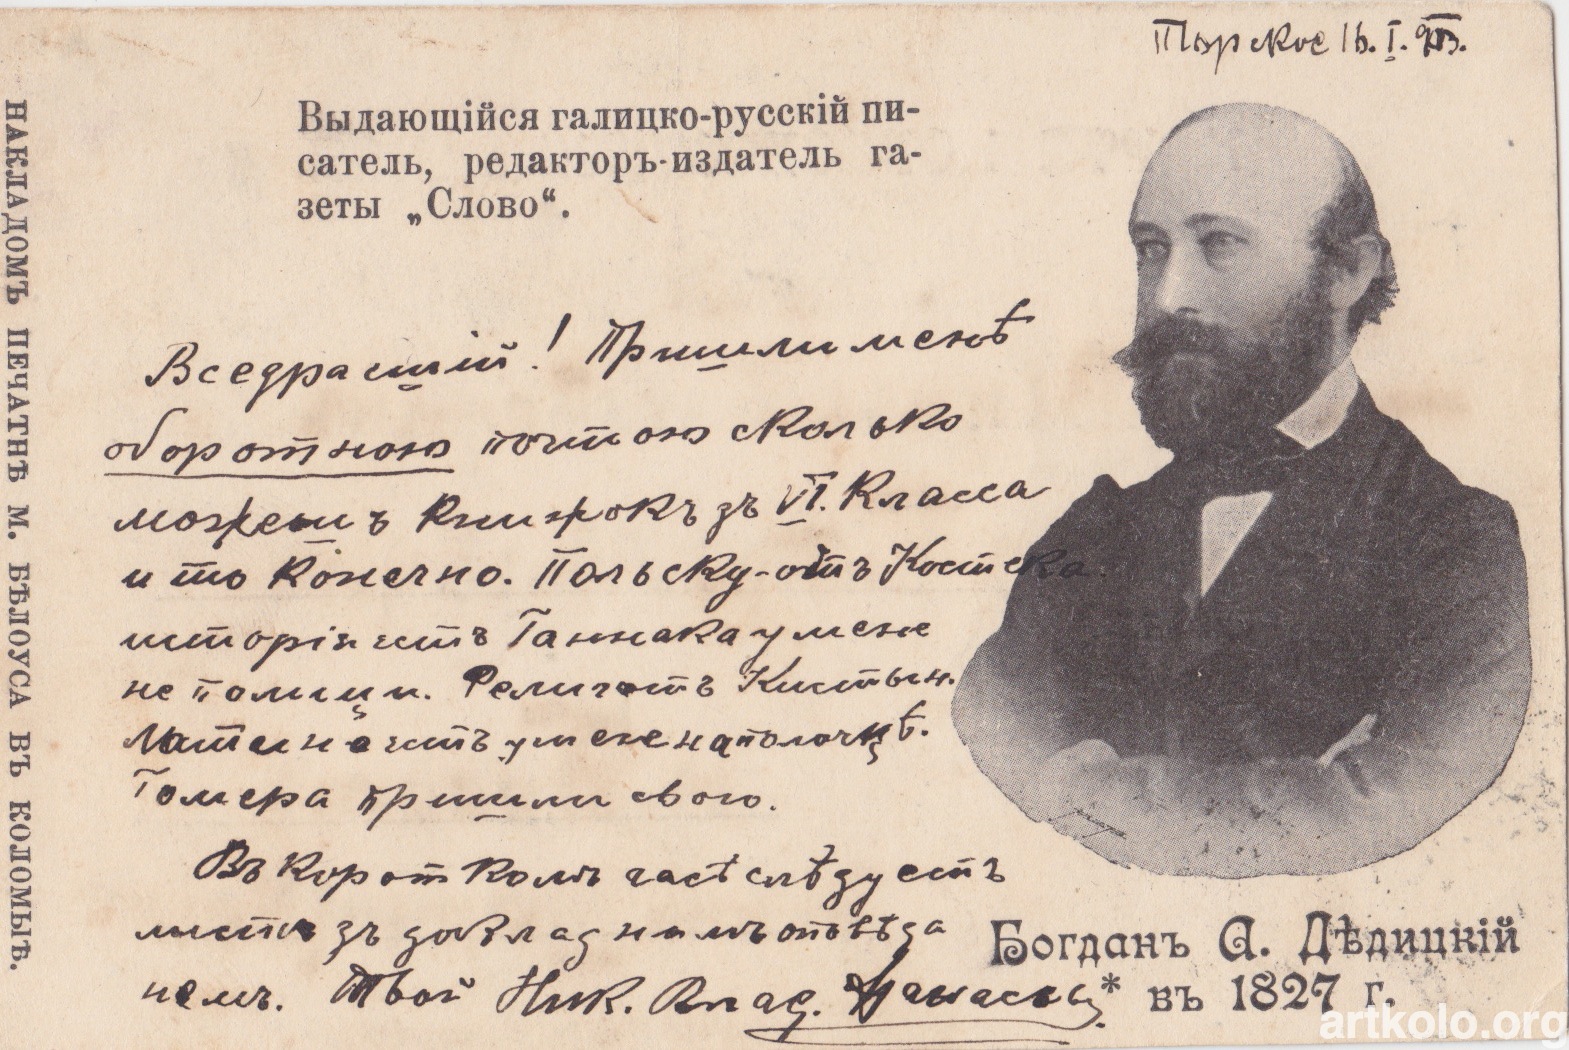 Выдающійся галицко-русскій пи-
сатель, редакторъ-издатель га-
зеты „Слово“.
НАКЛАДОМЪ ПЕЧАТНѢ М. БѢЛОУСА ВЪ КОЛОМЫѢ.
Вседрагшій! Пришли менѣ
оборотною почтою сколько
можешъ книжокъ зъ VI. класса
и то конечно. Польску-отъ Костека.
исторія естъ Ганнака у мене
не полищи.
у мене на
Гомера пришли свою.
Въ короткомъ часѣ слѣдуетъ
листъ зъ докладнымъ оповѣда
немъ. Твой Ник. Влад.
Богданъ А. Дѣдицкій
* въ 1827 г.
artkolo.org